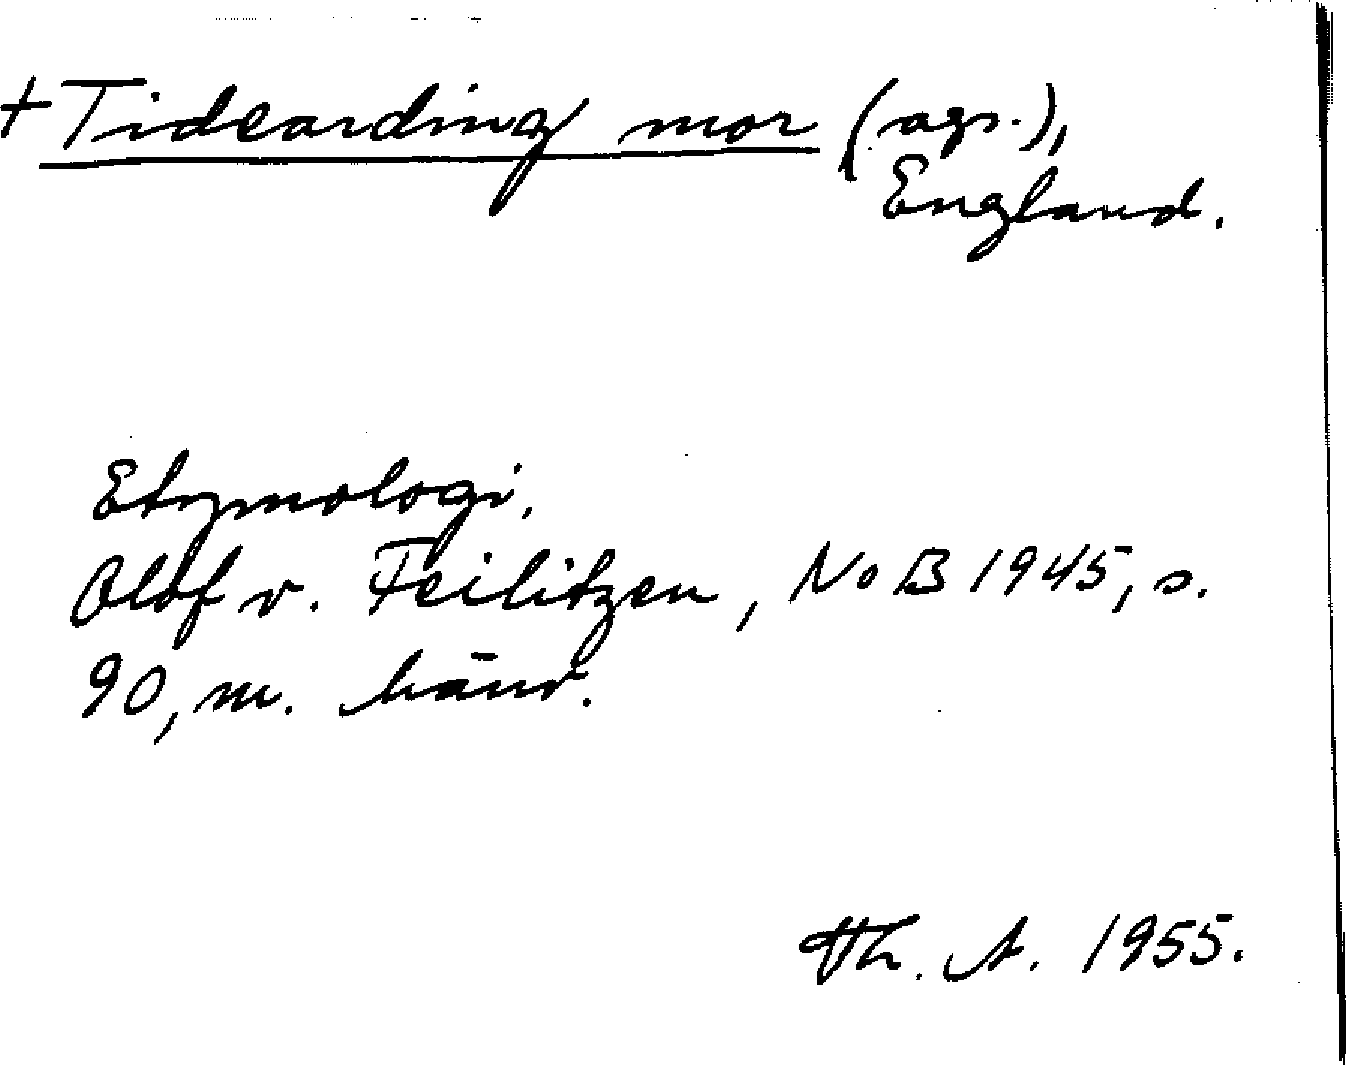 +Tidearding mor (ags.),
England.
Etymologi.
Olof v. Feilitzen, NoB 1945, s.
90, m. hänv.
Th. A. 1955.